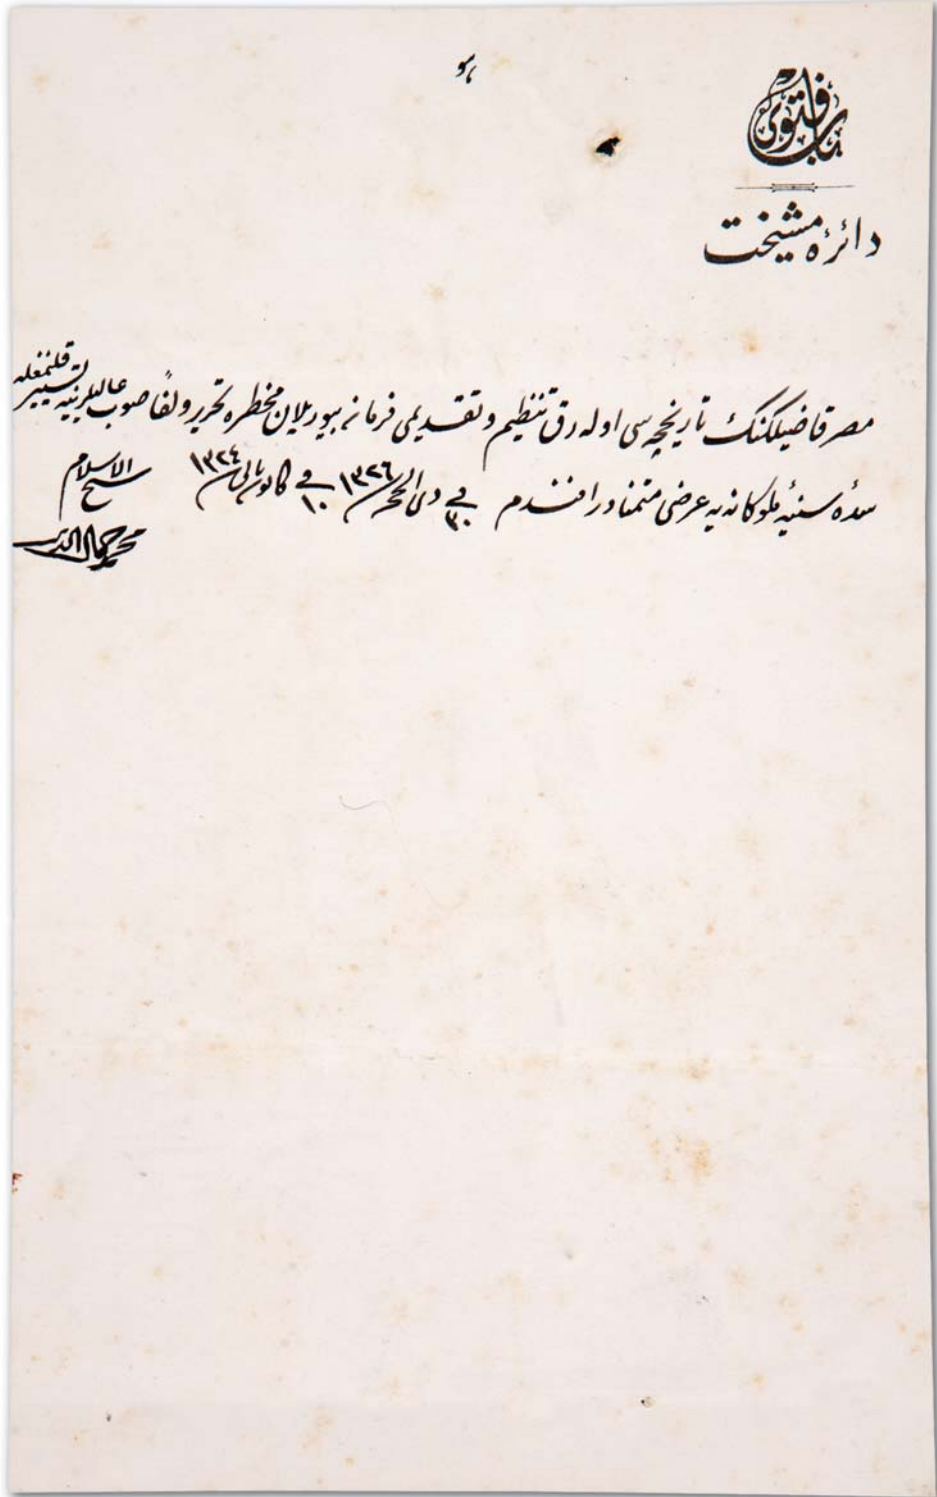 هو
باب فتوى
دائرۀ مشيخت
مصر قاضيلكنك تاريخچه سى اوله رق تنظيم وتقديمى فرمان بيوريلان مخطره تحرير ولفاً صوب عاليلرينه تسيير قلنمغله
سدۀ سنيۀ ملوكانه يه عرضى متمنادر افندم فى ٣٠ ذى الحجه ١٣٢٦ فى ١٠ كانون ثانى ١٣٢٤
شيخ الاسلام
محمد جمال الدين